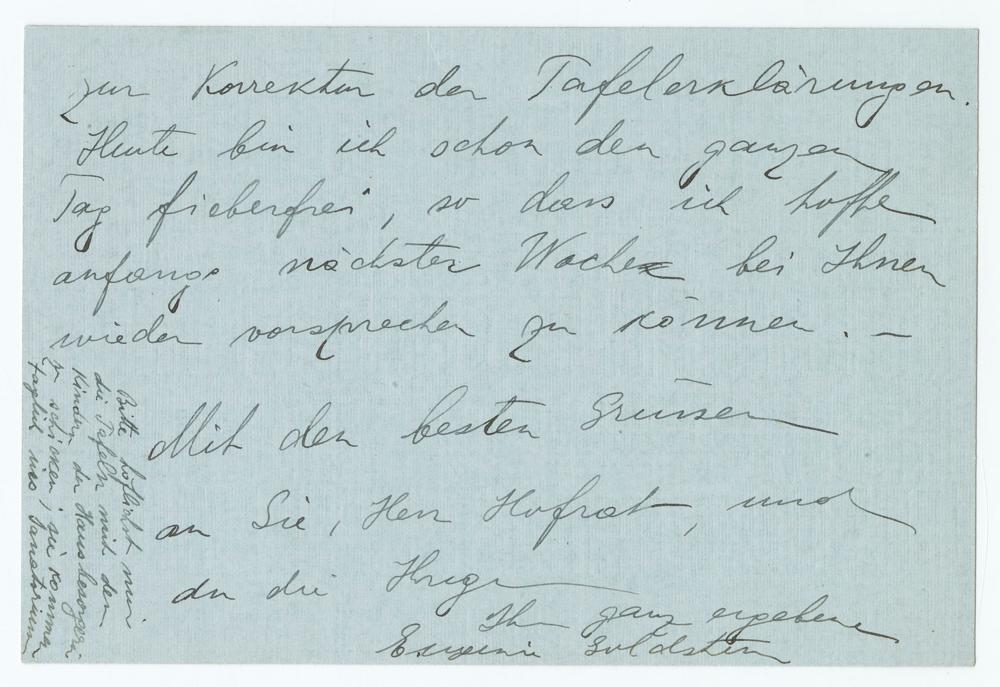 zur Korrektur der Tafelerklärungen.
Heute bin ich schon den ganzen
Tag fieberfrei, so dass ich hoffe
anfangs nächster Woche bei Ihnen
wieder vorsprechen zu können. —
Mit den besten Grüssen
an Sie, Herr Hofrat, und
an die Ihrige
Ihr ganz ergebene
Eugenie Goldstern
Bitte höflichst mir
die Tafeln mit den
Kindern der Hausbesorgerin
zu schicken; sie kommen
täglich ins Sanatorium